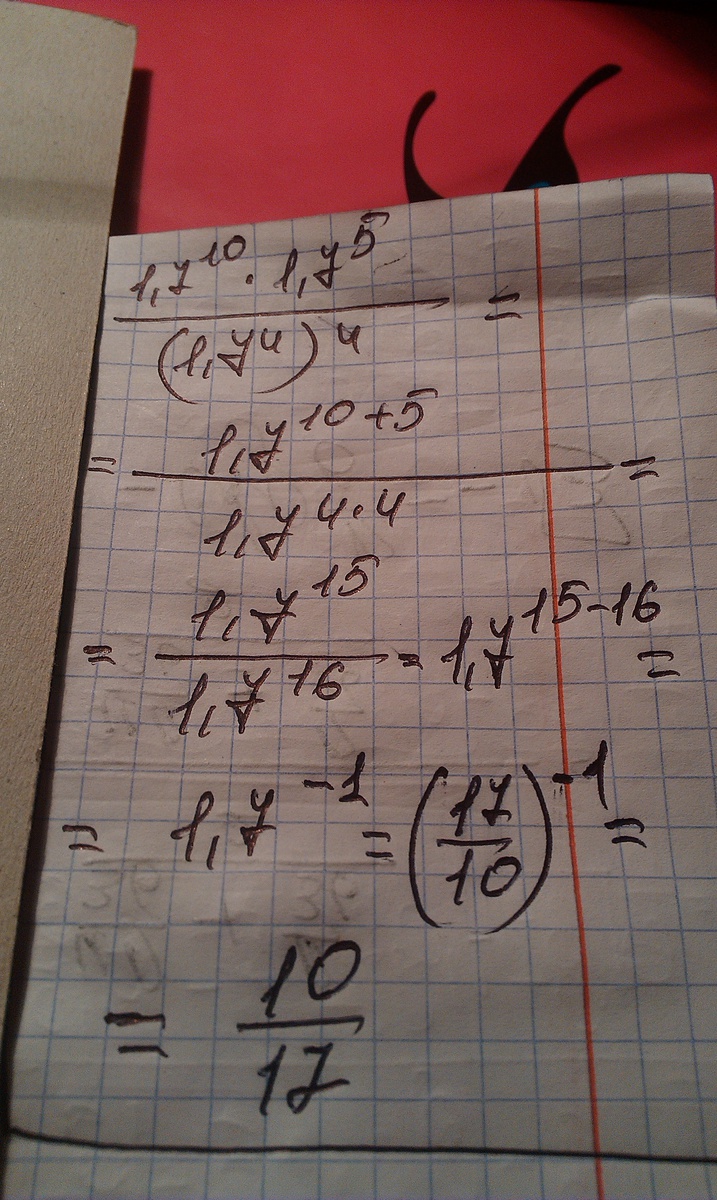 1,7^10 · 1,7^5
(1,7^4)^4 =
= 1,7^10+5 =
1,7^4·4
= 1,7^15 = 1,7^15-16 =
1,7^16
= 1,7^-1 = (17/10)^-1 =
= 10
17